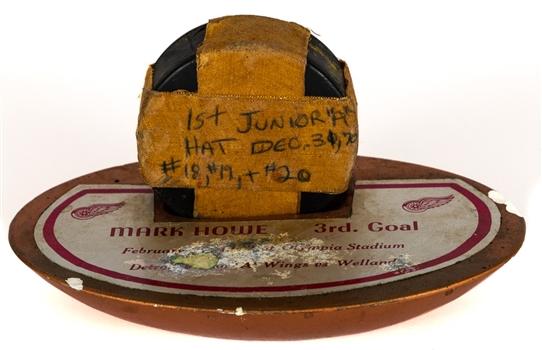 1ST JUNIOR "A"
HAT DEC. 30, 70
#18, #19, + #20
MARK HOWE 3rd. Goal
February Olympia Stadium
Wings vs Welland